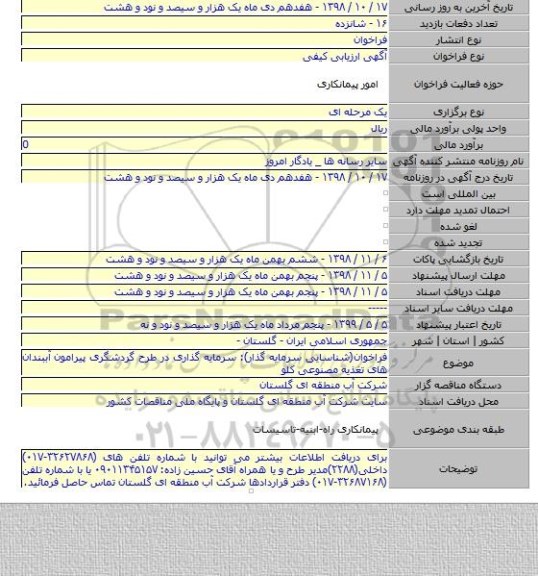 تاریخ آخرین به روز رسانی ۱۷ / ۱۰ / ۱۳۹۸ - هفدهم دی ماه یک هزار و سیصد و نود و هشت
تعداد دفعات بازدید ۱۶ - شانزده
نوع انتشار فراخوان
نوع فراخوان آگهی ارزیابی کیفی
حوزه فعالیت فراخوان امور پیمانکاری
نوع برگزاری یک مرحله ای
واحد پولی برآورد مالی ریال
برآورد مالی 0
نام روزنامه منتشر کننده آگهی سایر رسانه ها _ یادگار امروز
تاریخ درج آگهی در روزنامه ۱۷ / ۱۰ / ۱۳۹۸ - هفدهم دی ماه یک هزار و سیصد و نود و هشت
بین المللی است
احتمال تمدید مهلت دارد
لغو شده
تجدید شده
تاریخ بازگشایی پاکات ۶ / ۱۱ / ۱۳۹۸ - ششم بهمن ماه یک هزار و سیصد و نود و هشت
مهلت ارسال پیشنهاد ۵ / ۱۱ / ۱۳۹۸ - پنجم بهمن ماه یک هزار و سیصد و نود و هشت
مهلت دریافت اسناد ۵ / ۱۱ / ۱۳۹۸ - پنجم بهمن ماه یک هزار و سیصد و نود و هشت
مهلت دریافت سایر اسناد -----
تاریخ اعتبار پیشنهاد ۵ / ۵ / ۱۳۹۹ - پنجم مرداد ماه یک هزار و سیصد و نود و نه
کشور | استان | شهر جمهوری اسلامی ایران - گلستان -
موضوع فراخوان(شناسایی سرمایه گذار): سرمایه گذاری در طرح گردشگری پیرامون آببندان
های تغذیه مصنوعی کلو
دستگاه مناقصه گزار شرکت آب منطقه ای گلستان
محل دریافت اسناد سایت شرکت آب منطقه ای گلستان و پایگاه ملی مناقصات کشور
طبقه بندی موضوعی پیمانکاری راه-ابنیه-تاسیسات
توضیحات برای دریافت اطلاعات بیشتر می توانید با شماره تلفن های (۳۲۶۲۷۸۶۸-۰۱۷)
داخلی(۲۲۸۸)مدیر طرح و یا همراه آقای حسین زاده: ۰۹۰۱۱۳۴۵۱۵۷ یا با شماره تلفن
(۳۲۶۸۷۱۶۸-۰۱۷) دفتر قراردادها شرکت آب منطقه ای گلستان تماس حاصل فرمائید.
ParsNamadData
۰۲۱-۸۸۲۴۹۶۷۰-۵